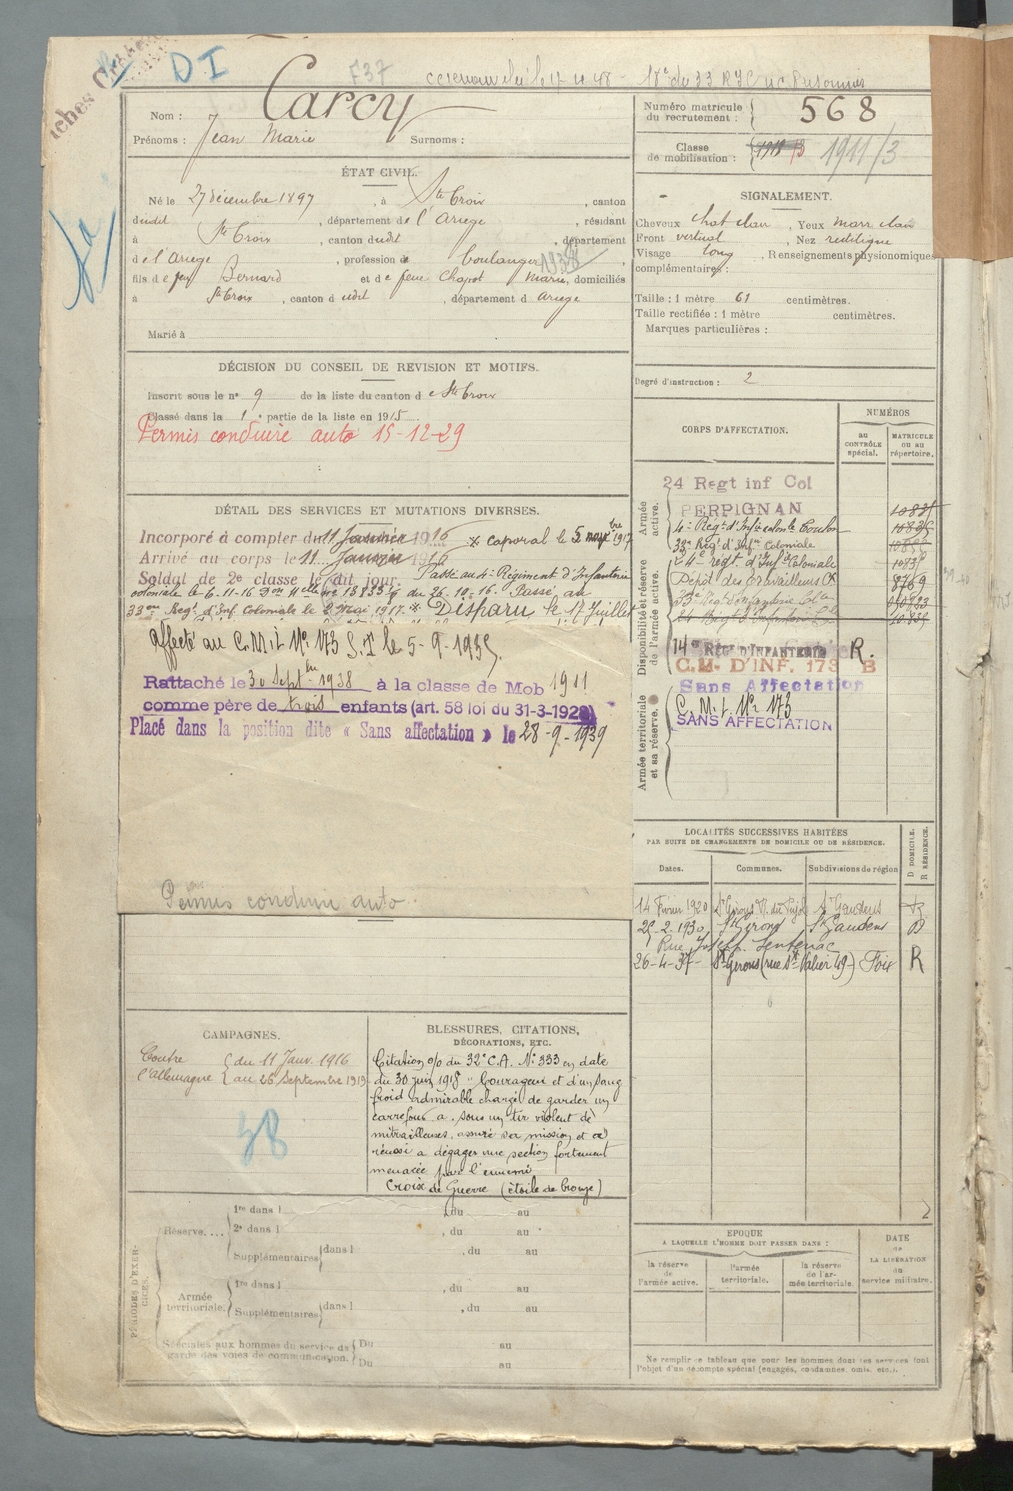 D.I
F37
Nom : Carcy
Prénoms : Jean Marie Surnoms :
Numéro matricule du recrutement : 568
Classe de mobilisation : 1918 1911/3
ÉTAT CIVIL.
Né le 27 décembre 1897, à Ste Croix, canton
dudit, département de l'Ariège, résidant
à Ste Croix, canton dudit, département
d e l'Ariège, profession de boulanger
fils de feu Bernard et de feue Chapot Marie, domiciliés
à Ste Croix, canton d udit, département d Ariège
Marié à
SIGNALEMENT.
Cheveux chat clair, Yeux marr clair
Front vertical, Nez rectiligne
Visage long, Renseignements physionomiques
complémentaires :
Taille : 1 mètre 61 centimètres.
Taille rectifiée : 1 mètre centimètres.
Marques particulières :
Degré d'instruction : 2
DÉCISION DU CONSEIL DE REVISION ET MOTIFS.
Inscrit sous le n° 9 de la liste du canton d e Ste Croix
Classé dans la 1e partie de la liste en 1915
Permis conduire auto 15-12-29
DÉTAIL DES SERVICES ET MUTATIONS DIVERSES.
Incorporé à compter du 11 Janvier 1916 x caporal le 5
Arrivé au corps le 11 Janvier 1916
Soldat de 2e classe le dit jour. Passé au 4e Régiment d'Infanterie
coloniale le 6-11-16 du 26-10-16. Passé au
33me Reg. d'Inf Coloniale le 2 Mai 1917. x Disparu le 17 Juillet
Affecté au C.M.I. N° 173 S.I le 5-9-1935.
Rattaché le 30 Septbre 1938 à la classe de Mob 1911
comme père de trois enfants (art. 58 loi du 31-3-1928)
Placé dans la position dite « Sans affectation » le 28-9-1939
Permis conduire auto
CORPS D'AFFECTATION.
NUMÉROS
au CONTRÔLE spécial.
MATRICULE ou au répertoire.
Armée active.
24 Regt inf Col
PERPIGNAN
4e Regt d'Inf colonle Toulon
33e Regt d'Infrie Coloniale
24e regt. d'Infie Coloniale
Dépôt des Travailleurs
8769
Disponibilité et réserve de l'armée active.
14e REGt D'INFANTERIE R.
C.M. D'INF. 173 B
Sans Affectation
C.M.I. N° 173
SANS AFFECTATION
Armée territoriale et sa réserve.
LOCALITÉS SUCCESSIVES HABITÉES
PAR SUITE DE CHANGEMENTS DE DOMICILE OU DE RÉSIDENCE.
Dates. Communes. Subdivisions de région
D DOMICILE. R RÉSIDENCE.
14 Février 1920 St Girons St Gaudens R
25-2-1930 St Girons St Gaudens D
Rue Joseph Sentenac
26-4-37 St Girons (rue St Valier 49) Foix R
CAMPAGNES.
Contre l'Allemagne
du 11 Janv. 1916
au 26 Septembre 1919
58
BLESSURES, CITATIONS,
DÉCORATIONS, ETC.
Citation o/o du 32e C.A. N° 333 en date
du 30 juin 1918 "Courageux et d'un sang
froid admirable chargé de garder un
carrefour a sous un tir violent de
mitrailleuses, assuré sa mission et a
réussi à dégager une section fortement
menacée par l'ennemi
Croix de Guerre (étoile de bronze)
PÉRIODES D'EXERCICES.
Réserve....
1re dans l , du au
2e dans l , du au
Supplémentaires dans l , du au
Armée territoriale.
1re dans l , du au
Supplémentaires dans l , du au
Spéciales aux hommes du service de garde des voies de communication.
Du au
Du au
EPOQUE
A LAQUELLE L'HOMME DOIT PASSER DANS :
la réserve de l'armée active.
l'armée territoriale.
la réserve de l'armée territoriale.
DATE de LA LIBÉRATION du service militaire.
Ne remplir ce tableau que pour les hommes dont les services font
l'objet d'un décompte spécial (engagés, condamnés, omis, etc.).